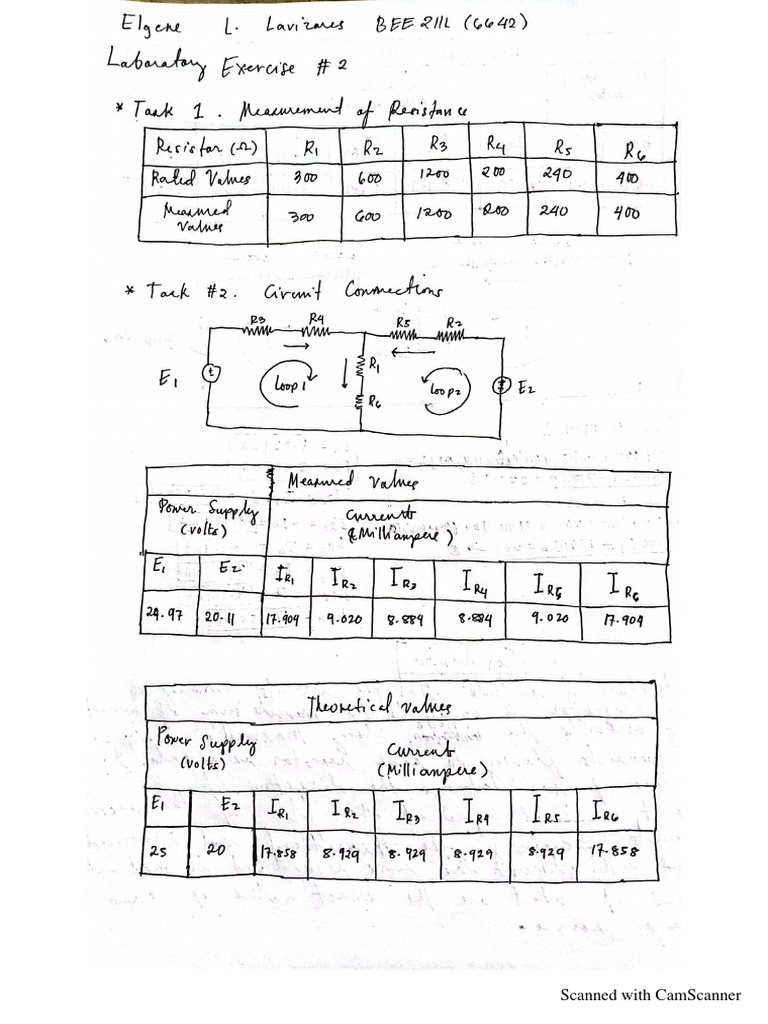 Elgene L. Lavizares BEE 211L (6642)
Laboratory Exercise # 2
* Task 1. Measurement of Resistance
Resistor (Ω) R1 R2 R3 R4 R5 R6
Rated Values 300 600 1200 200 240 400
Measured Values 300 600 1200 200 240 400
* Task #2. Circuit Connections
R3 R4 R5 R2
E1 Loop 1 R1 R6 Loop 2 E2
Measured Values
Power Supply (volts) Currents (Milliampere)
E1 E2 IR1 IR2 IR3 IR4 IR5 IR6
24.97 20.11 17.904 9.020 8.884 8.884 9.020 17.904
Theoretical values
Power Supply (volts) Current (Milliampere)
E1 E2 IR1 IR2 IR3 IR4 IR5 IR6
25 20 17.858 8.929 8.929 8.929 8.929 17.858
Scanned with CamScanner